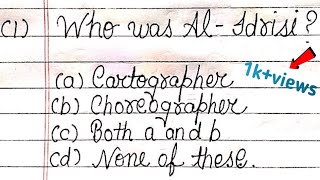 (1) Who was Al-Idrisi?
(a) Cartographer
1k+views
(b) Choreographer
(c) Both a and b
(d) None of these.